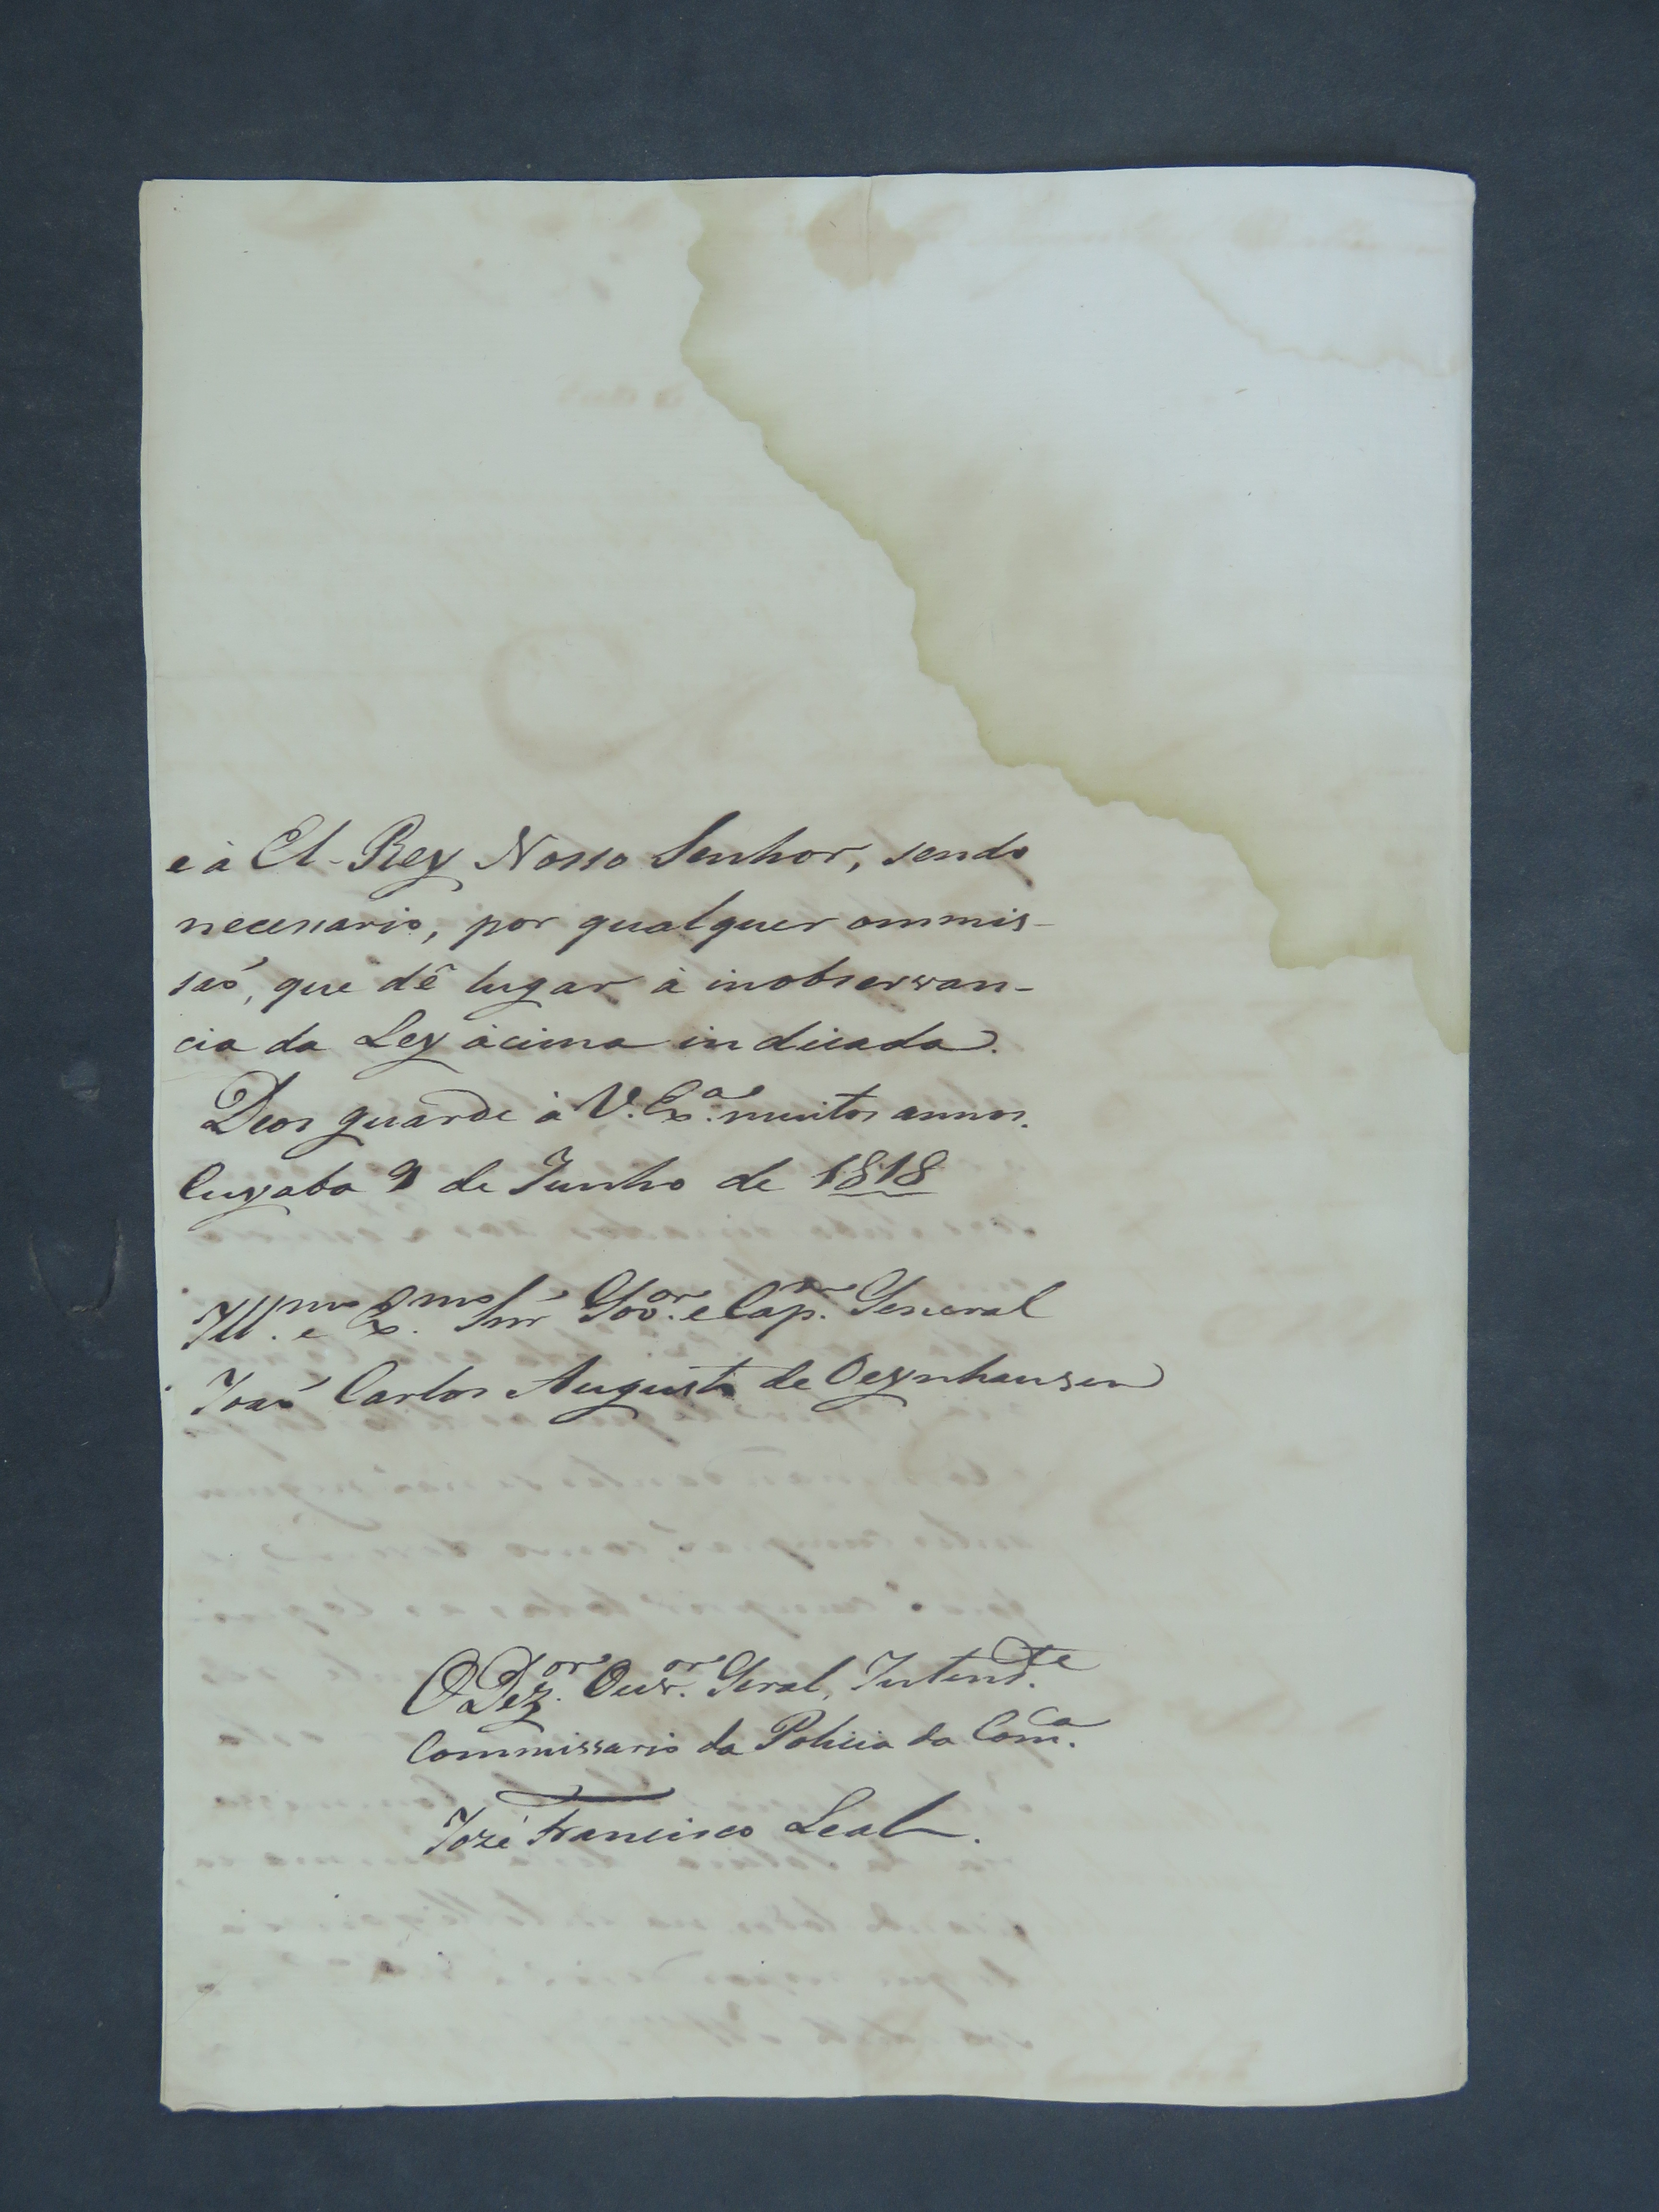 e à El-Rey Nosso Senhor, sendo
necessario, por qualquer ommis-
saõ, que dê lugar à inobservan-
cia da Ley àcima indicada.
Deos guarde à V. Exª. muitos annos.
Cuyaba 9 de Junho de 1818
Illmo. e Exmo. Snr Govor. e Capm. General
Joaõ Carlos Augusto de Oeynhausen
O Dezor. Ouvor. Geral, Intendte.
Commissario da Policia da Comca.
Jozé Francisco Leal.